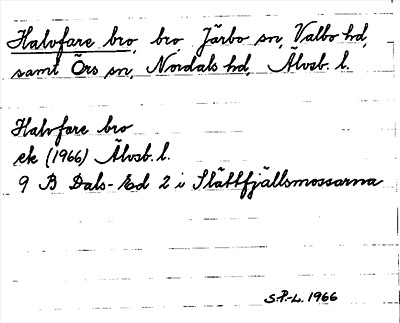 Halvfare bro, bro Järbo sn, Valbo hd,
samt Örs sn, Nordals hd, Älvsb. l.
Halvfare bro
ek (1966) Älvsb. l.
9 B Dals-Ed 2 i Slättfjällsmossarna
S.P.-L. 1966